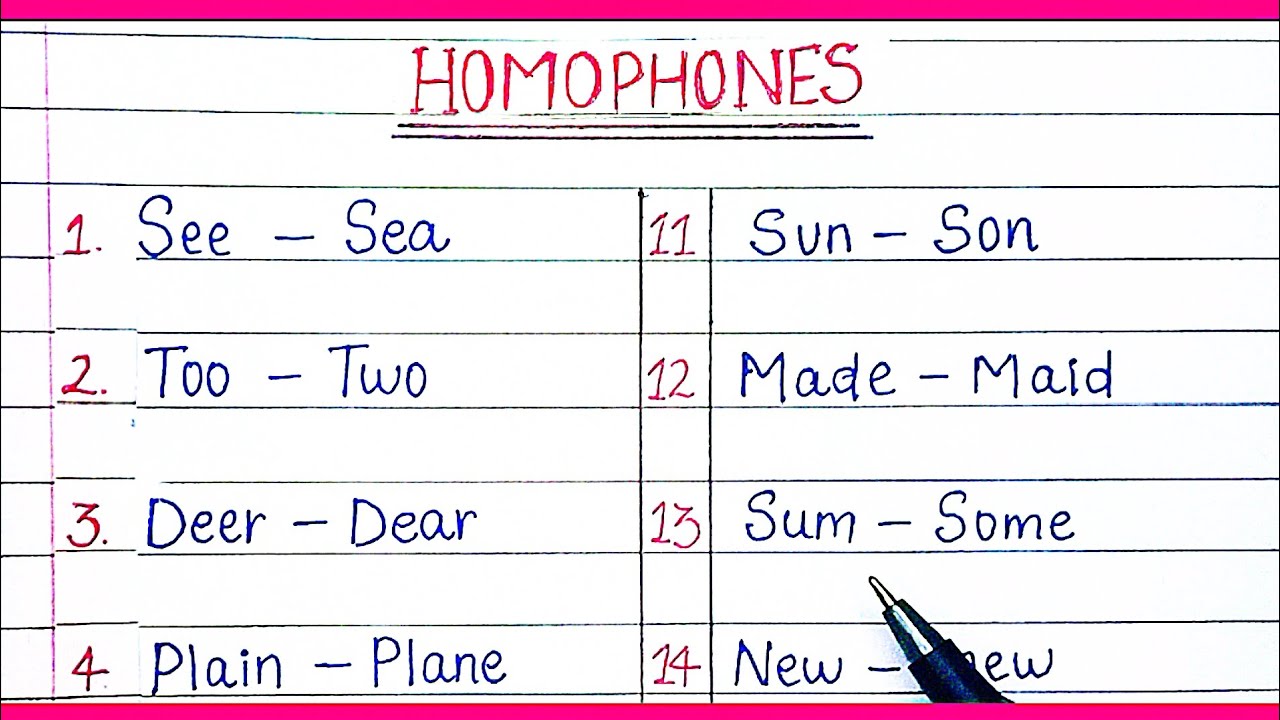 HOMOPHONES
1. See - Sea
2. Too - Two
3. Deer - Dear
4. Plain - Plane
11 Sun - Son
12 Made - Maid
13 Sum - Some
14 New -